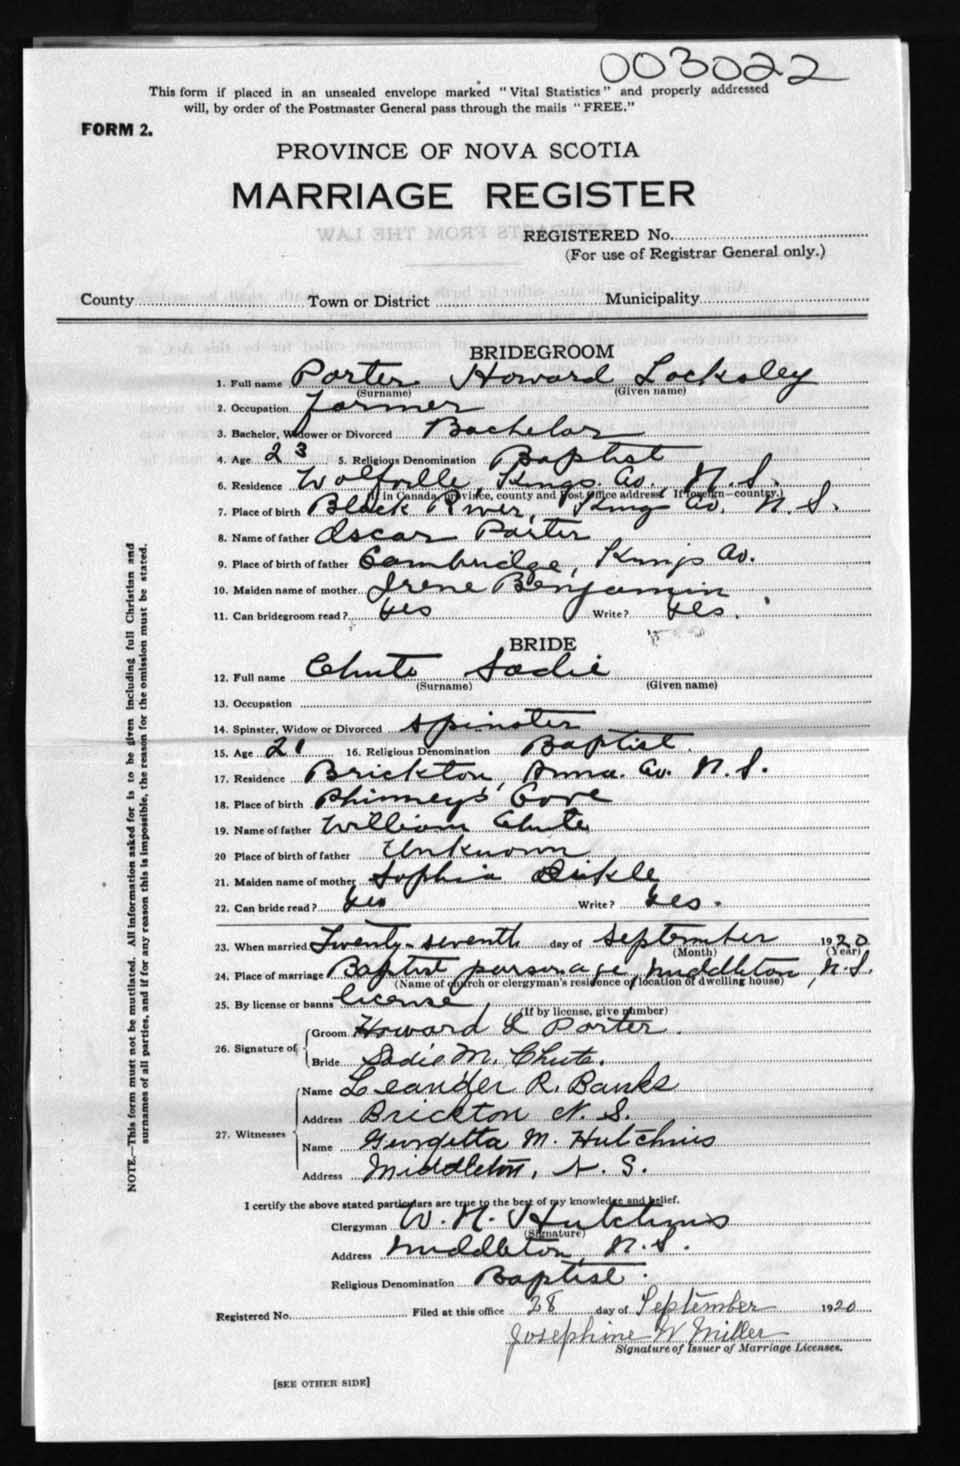 003022
This form if placed in an unsealed envelope marked "Vital Statistics" and properly addressed
will, by order of the Postmaster General pass through the mails "FREE."
FORM 2.
PROVINCE OF NOVA SCOTIA
MARRIAGE REGISTER
EXTRACTS FROM THE LAW
REGISTERED No.
(For use of Registrar General only.)
County Town or District Municipality
BRIDEGROOM
1. Full name Porter Howard Locksley
(Surname) (Given name)
2. Occupation farmer
3. Bachelor, Widower or Divorced Bachelor
4. Age 23 5. Religious Denomination Baptist
6. Residence Wolfville, Kings Co., N.S.
(If in Canada, province, county and Post Office address. If foreign—country.)
7. Place of birth Black River, King Co. N.S.
8. Name of father Oscar Porter
9. Place of birth of father Cambridge, Kings Co.
10. Maiden name of mother Irene Benjamin
11. Can bridegroom read? Yes Write? Yes.
BRIDE
12. Full name Chute Sadie
(Surname) (Given name)
13. Occupation
14. Spinster, Widow or Divorced Spinster
15. Age 21 16. Religious Denomination Baptist.
17. Residence Brickton, Anna. Co. N.S.
18. Place of birth Phinney's Cove
19. Name of father William Chute
20 Place of birth of father Unknown
21. Maiden name of mother Sophia
22. Can bride read? Yes Write? Yes.
23. When married Twenty-seventh day of September 1920
(Month) (Year)
24. Place of marriage Baptist parsonage, Middleton, N.S.
(Name of church or clergyman's residence of location of dwelling house)
25. By license or banns license
(If by license, give number)
26. Signature of Groom Howard L Porter.
Bride Sadie M. Chute.
27. Witnesses Name Leander R. Banks
Address Brickton N.S.
Name Georgetta M. Hutchins
Address Middleton, N.S.
I certify the above stated particulars are true to the best of my knowledge and belief.
Clergyman W. H. Hutchins
(Signature)
Address Middleton, N.S.
Religious Denomination Baptist.
Registered No. Filed at this office 28 day of September 1920
Josephine W Miller
Signature of Issuer of Marriage Licenses.
[SEE OTHER SIDE]
NOTE.—This form must not be mutilated. All information asked for is to be given including full Christian and
surnames of all parties, and if for any reason this is impossible, the reason for the omission must be stated.